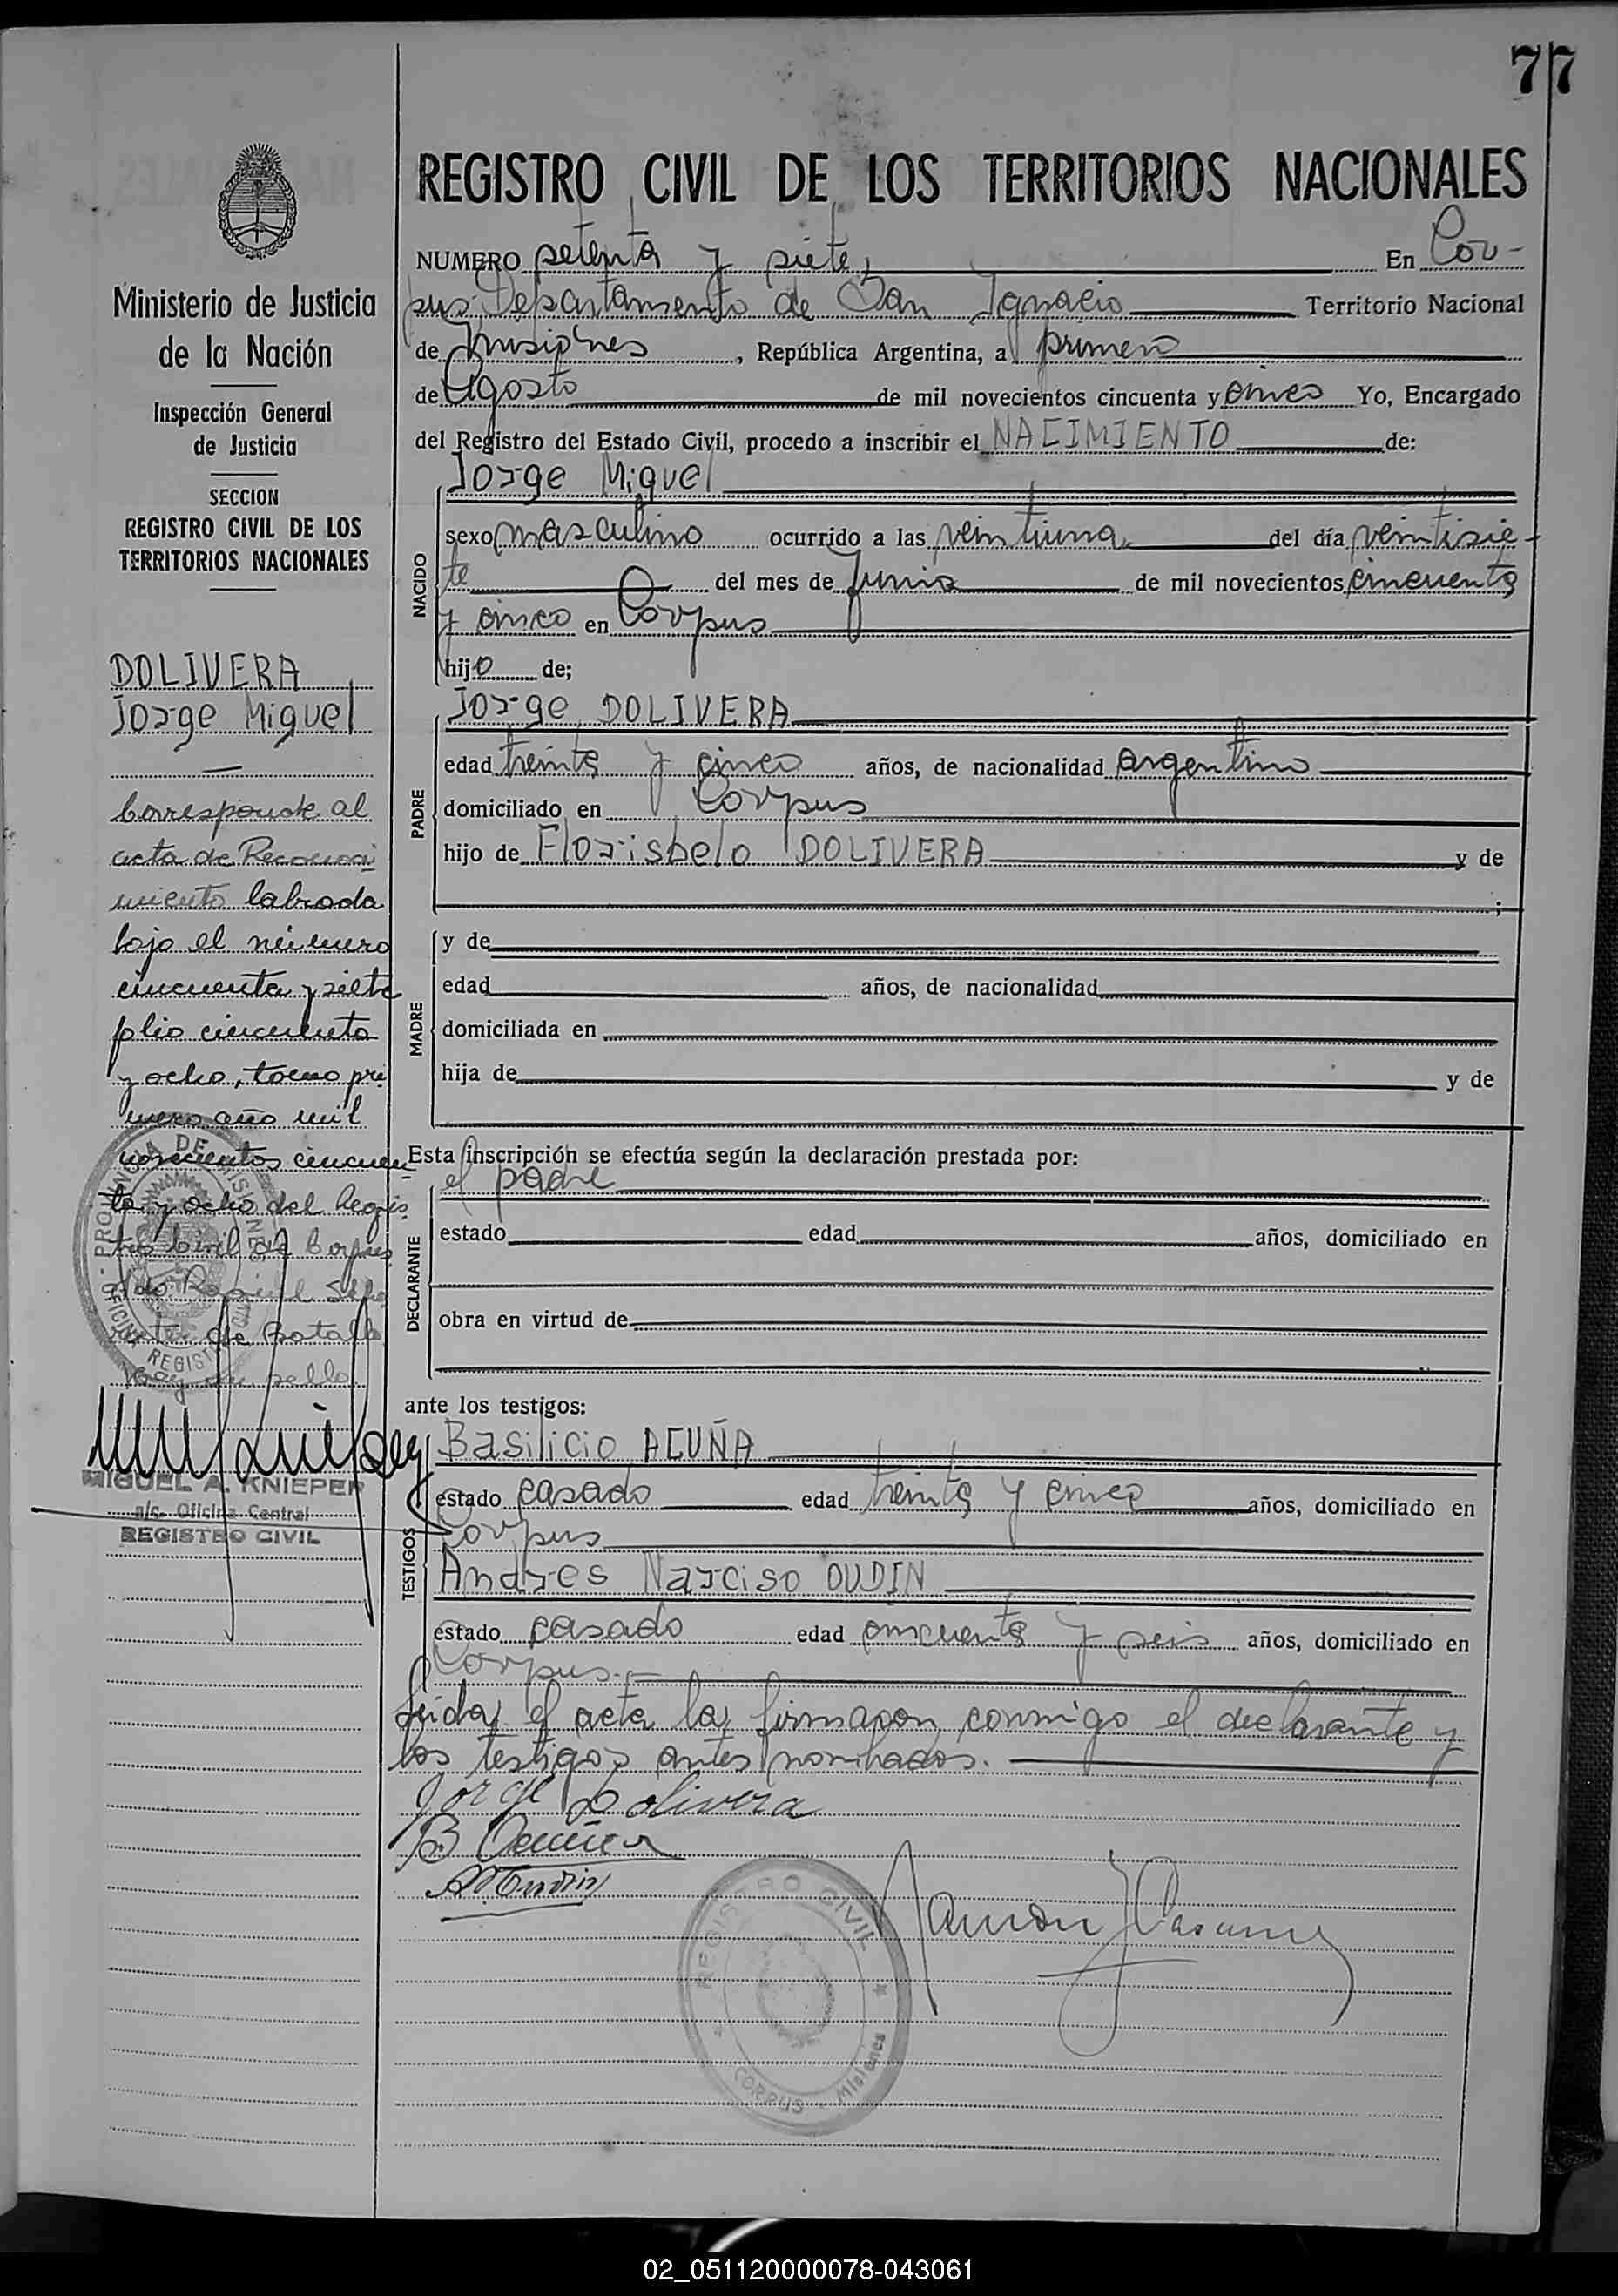 77
REGISTRO CIVIL DE LOS TERRITORIOS NACIONALES
NUMERO setenta y siete En Cor-
pus Departamento de San Ignacio Territorio Nacional
de Misiones, República Argentina, a primero
de Agosto de mil novecientos cincuenta y cinco Yo, Encargado
del Registro del Estado Civil, procedo a inscribir el NACIMIENTO de:
Jorge Miguel
NACIDO
sexo masculino ocurrido a las veintiuna del día veintisie-
te del mes de Junio de mil novecientos cincuenta
y cinco en Corpus
hijo de;
Jorge DOLIVERA
PADRE
edad treinta y cinco años, de nacionalidad argentino
domiciliado en Corpus
hijo de Florisbelo DOLIVERA y de
;
MADRE
y de
edad años, de nacionalidad
domiciliada en
hija de y de
Esta inscripción se efectúa según la declaración prestada por:
el padre
DECLARANTE
estado edad años, domiciliado en
obra en virtud de
ante los testigos:
TESTIGOS
Basilicio ACUÑA
estado casado edad treinta y cinco años, domiciliado en
Corpus
Andres Narciso OUDIN
estado casado edad cincuenta y seis años, domiciliado en
Corpus.
Leida el acta la firmaron conmigo el declarante y
los testigos antes nombrados.
Jorge Dolivera
B Acuña
REGISTRO CIVIL
CORPUS - Misiones
Ministerio de Justicia
de la Nación
Inspección General
de Justicia
SECCION
REGISTRO CIVIL DE LOS
TERRITORIOS NACIONALES
DOLIVERA
Jorge Miguel
Corresponde al
acta de Reconoci
miento labrada
bajo el número
cincuenta y siete
folio cincuenta
y ocho, tomo pri
mero año mil
novecientos cincuen
ta y ocho del Regis
tro Civil de Corpus
Hay un sello
PROVINCIA DE MISIONES
OFICINA REGISTRO
MIGUEL A. KNIEPER
a/c. Oficina Central
REGISTRO CIVIL
02_051120000078-043061